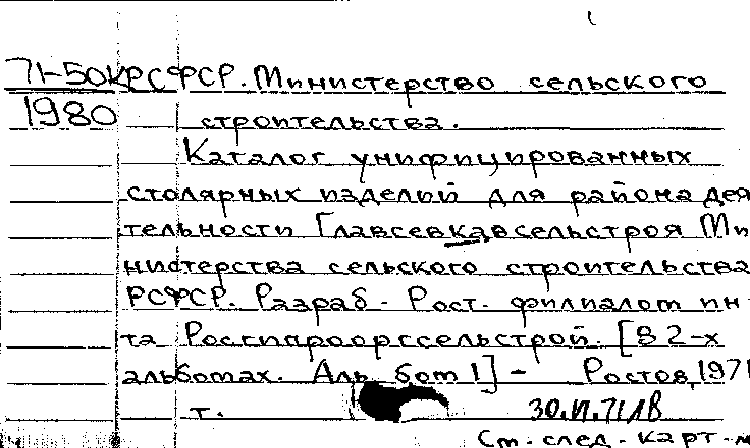 71-50К РСФСР. Министерство сельского
1980 строительства.
Каталог унифицированных
столярных изделий для района дея
тельности Главсевкавсельстроя Ми
нистерства сельского строительства
РСФСР. Разраб. Рост. филиалом ин-
та Росгипрооргсельстрой. [В 2-х
альбомах. Альбом 1] - Ростов, 1971
т.
Ст. след. карт.